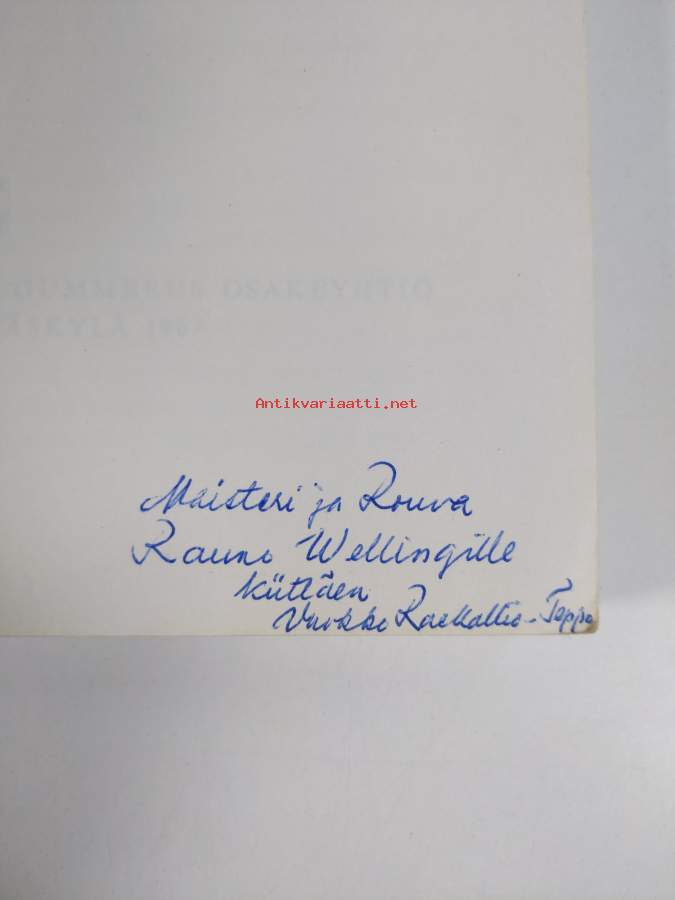 GUMMERUS OSAKEYHTIÖ
Antikvariaatti.net
Maisteri ja Rouva
Rauno Wellingille
kiittäen
Varkki Raekallio-Teppo